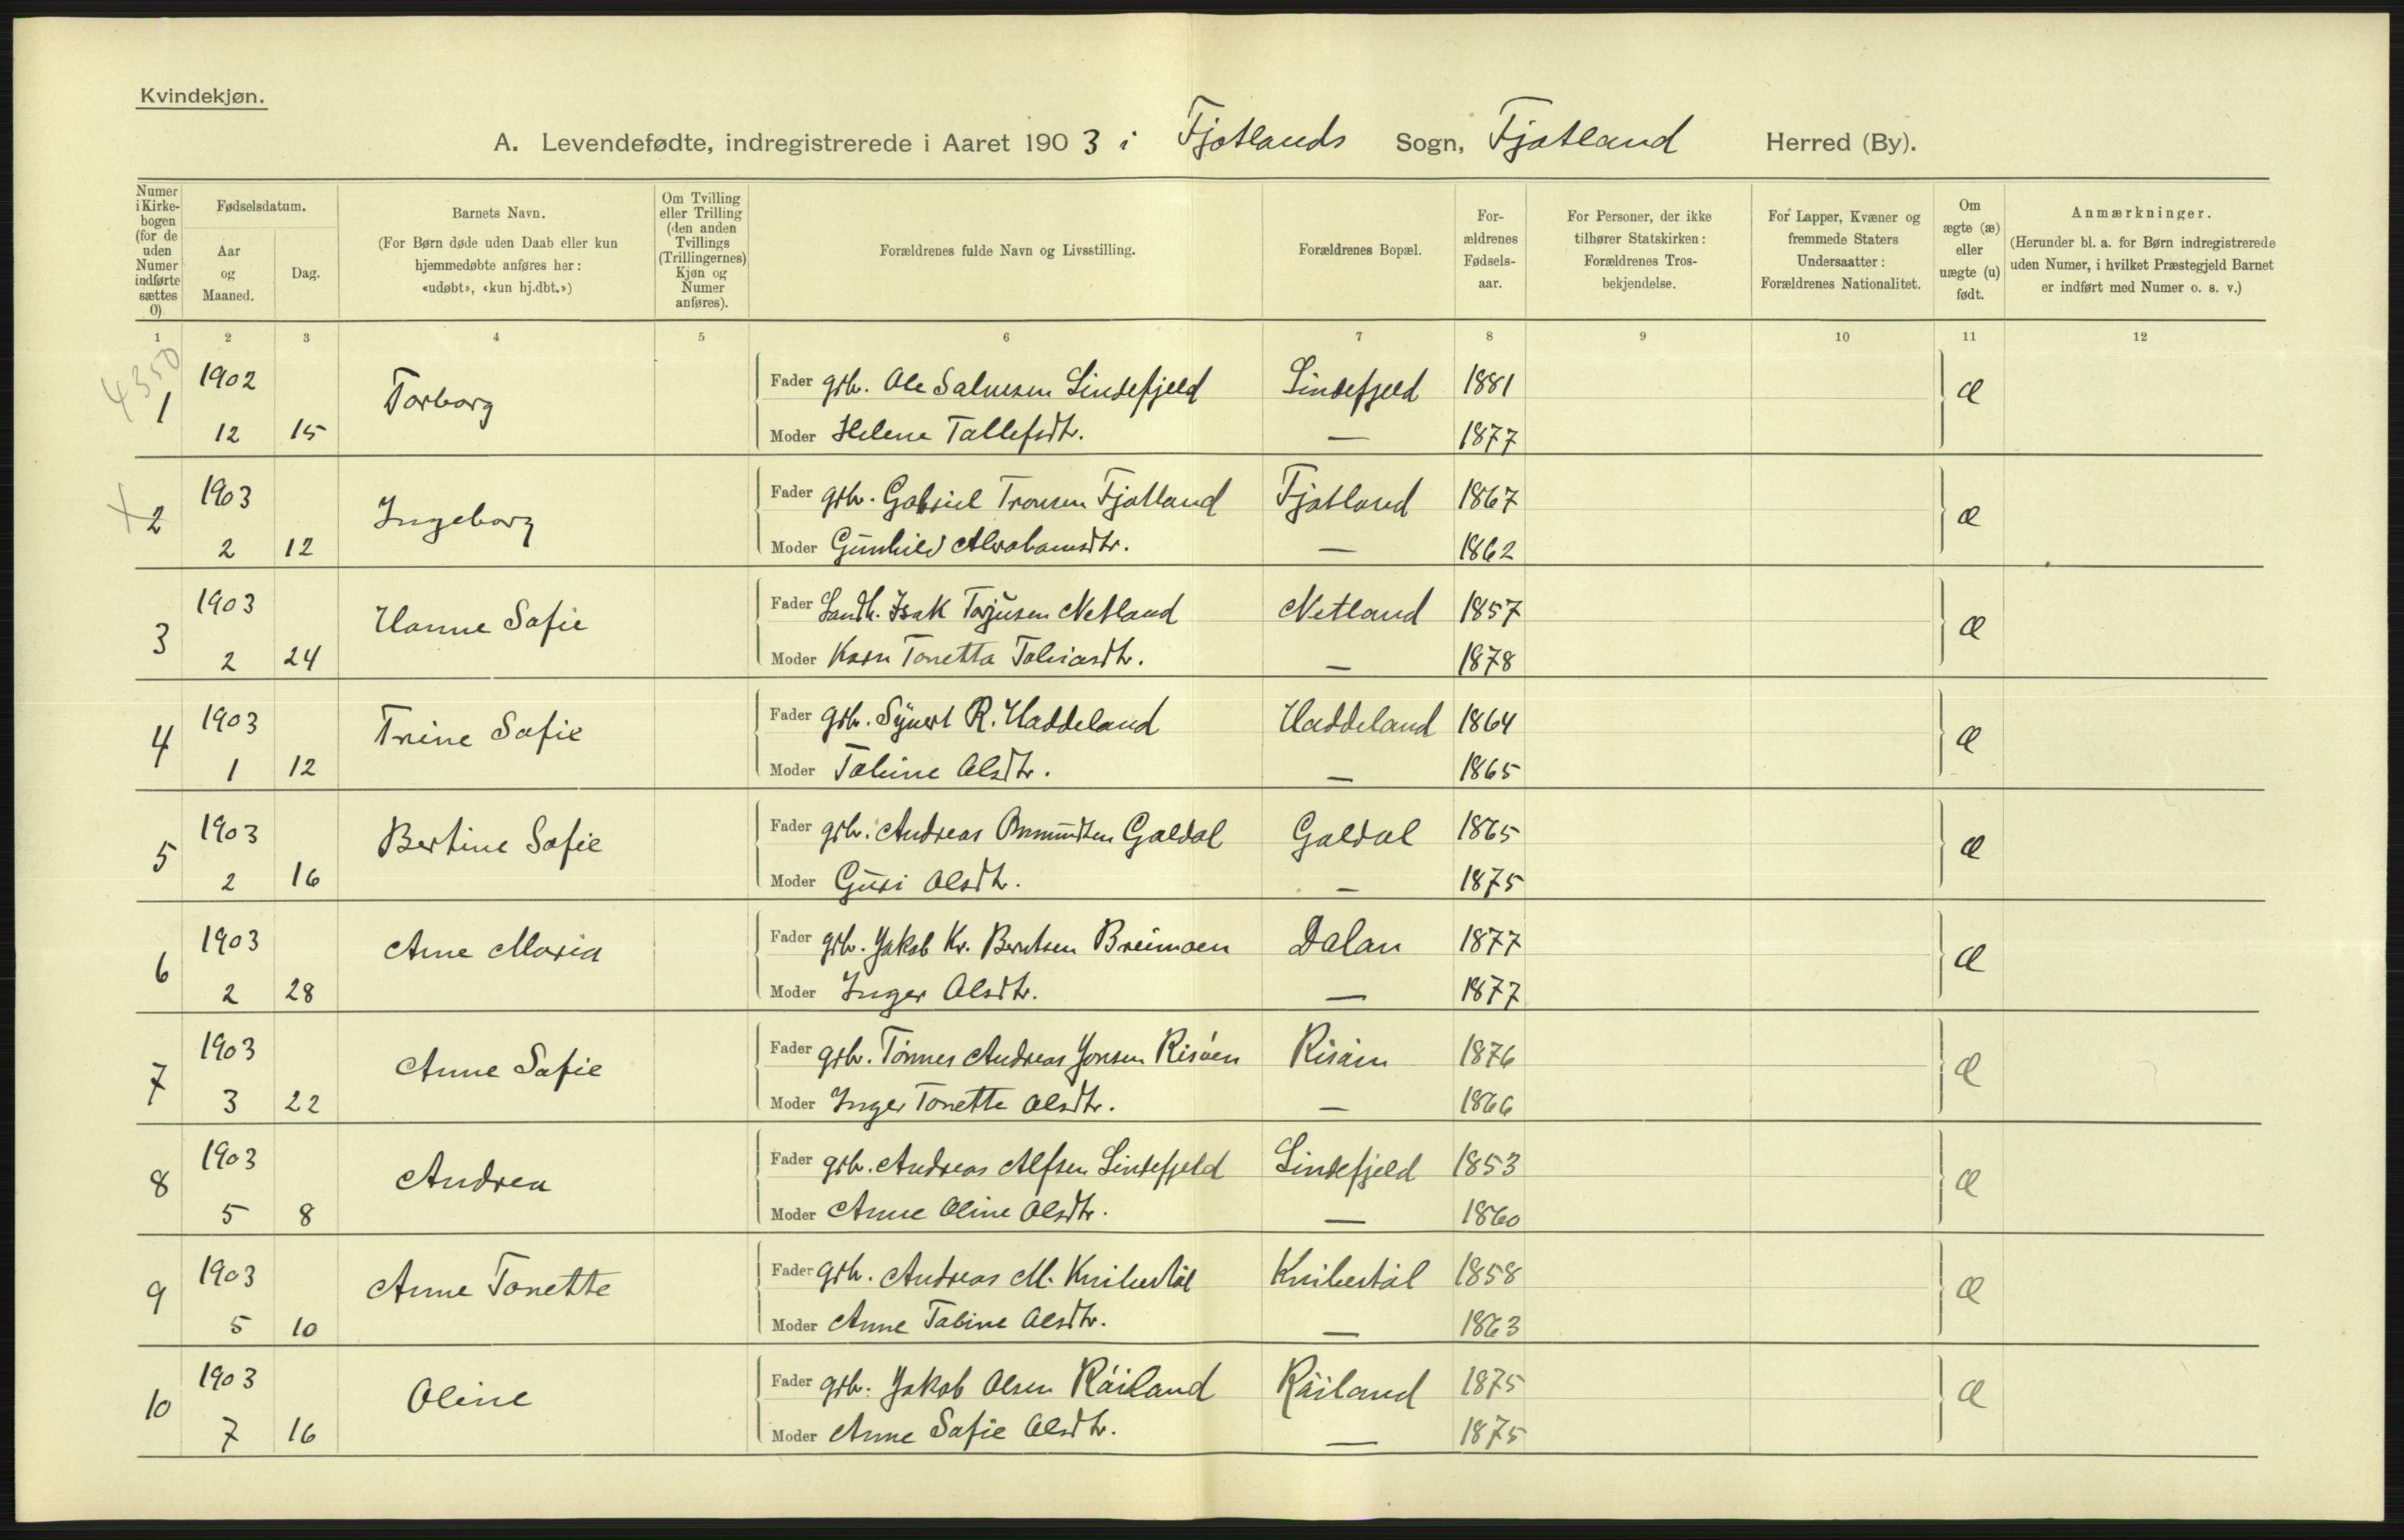 Kvindekjøn.
A. Levendefødte, indregistrerede i Aaret 1903 i Fjotlands Sogn, Fjotland Herred (By).
Numer i Kirkebogen (for de uden Numer indførte sættes 0).
Fødselsdatum.
Aar og Maaned.
Dag.
Barnets Navn.
(For Børn døde uden Daab eller kun hjemmedøbte anføres her: «udøbt», «kun hj.dbt.»)
Om Tvilling eller Trilling (den anden Tvillings (Trillingernes) Kjøn og Numer anføres).
Forældrenes fulde Navn og Livsstilling.
Forældrenes Bopæl.
Forældrenes Fødselsaar.
For Personer, der ikke tilhører Statskirken: Forældrenes Trosbekjendelse.
For Lapper, Kvæner og fremmede Staters Undersaatter: Forældrenes Nationalitet.
Om ægte (æ) eller uægte (u) født.
Anmærkninger.
(Herunder bl. a. for Børn indregistrerede uden Numer, i hvilket Præstegjeld Barnet er indført med Numer o. s. v.)
1 2 3 4 5 6 7 8 9 10 11 12
4350
1 1902 Torborg Fader grb. Ole Salvesen Lindefjeld Lindefjeld 1881 Æ
12 15 Moder Helene Tallefsdtr. — 1877
2 1903 Ingeborg Fader grb. Gabriel Tronsen Fjotland Fjotland 1867 æ
2 12 Moder Gunhild Abrahamsdtr. — 1862
3 1903 Hanne Sofie Fader Isak Torjusen Netland Netland 1857 Æ
2 24 Moder Karn Tonetta Tobiasdtr. — 1878
4 1903 Trine Sofie Fader grb. Sÿvert R. Haddeland Haddeland 1864 Æ
1 12 Moder Tobine Olsdtr. — 1865
5 1903 Bertine Sofie Fader grb. Andreas Omundsen Galdal Galdal 1865 Æ
2 16 Moder Guri Olsdtr. — 1875
6 1903 Ane Maria Fader grb. Jakob Kr. Berntsen Breimoen Dalan 1877 Æ
2 28 Moder Inger Olsdtr. — 1877
7 1903 Anne Sofie Fader grb. Tönnes Andreas Jonsen Risåen Risåen 1876 Æ
3 22 Moder Inger Tonette Olsdtr. — 1866
8 1903 Andrea Fader grb. Andreas Alfsen Lindefjeld Lindefjeld 1853 Æ
5 8 Moder Anne Oline Olsdtr. — 1860
9 1903 Anne Tonette Fader grb. Andreas M. Knibestöl Knibestöl 1858 Æ
5 10 Moder Anne Tobine Olsdtr. — 1863
10 1903 Oline Fader grb. Jakob Olsen Röiland Röiland 1875 Æ
7 16 Moder Anne Sofie Olsdtr. — 1875